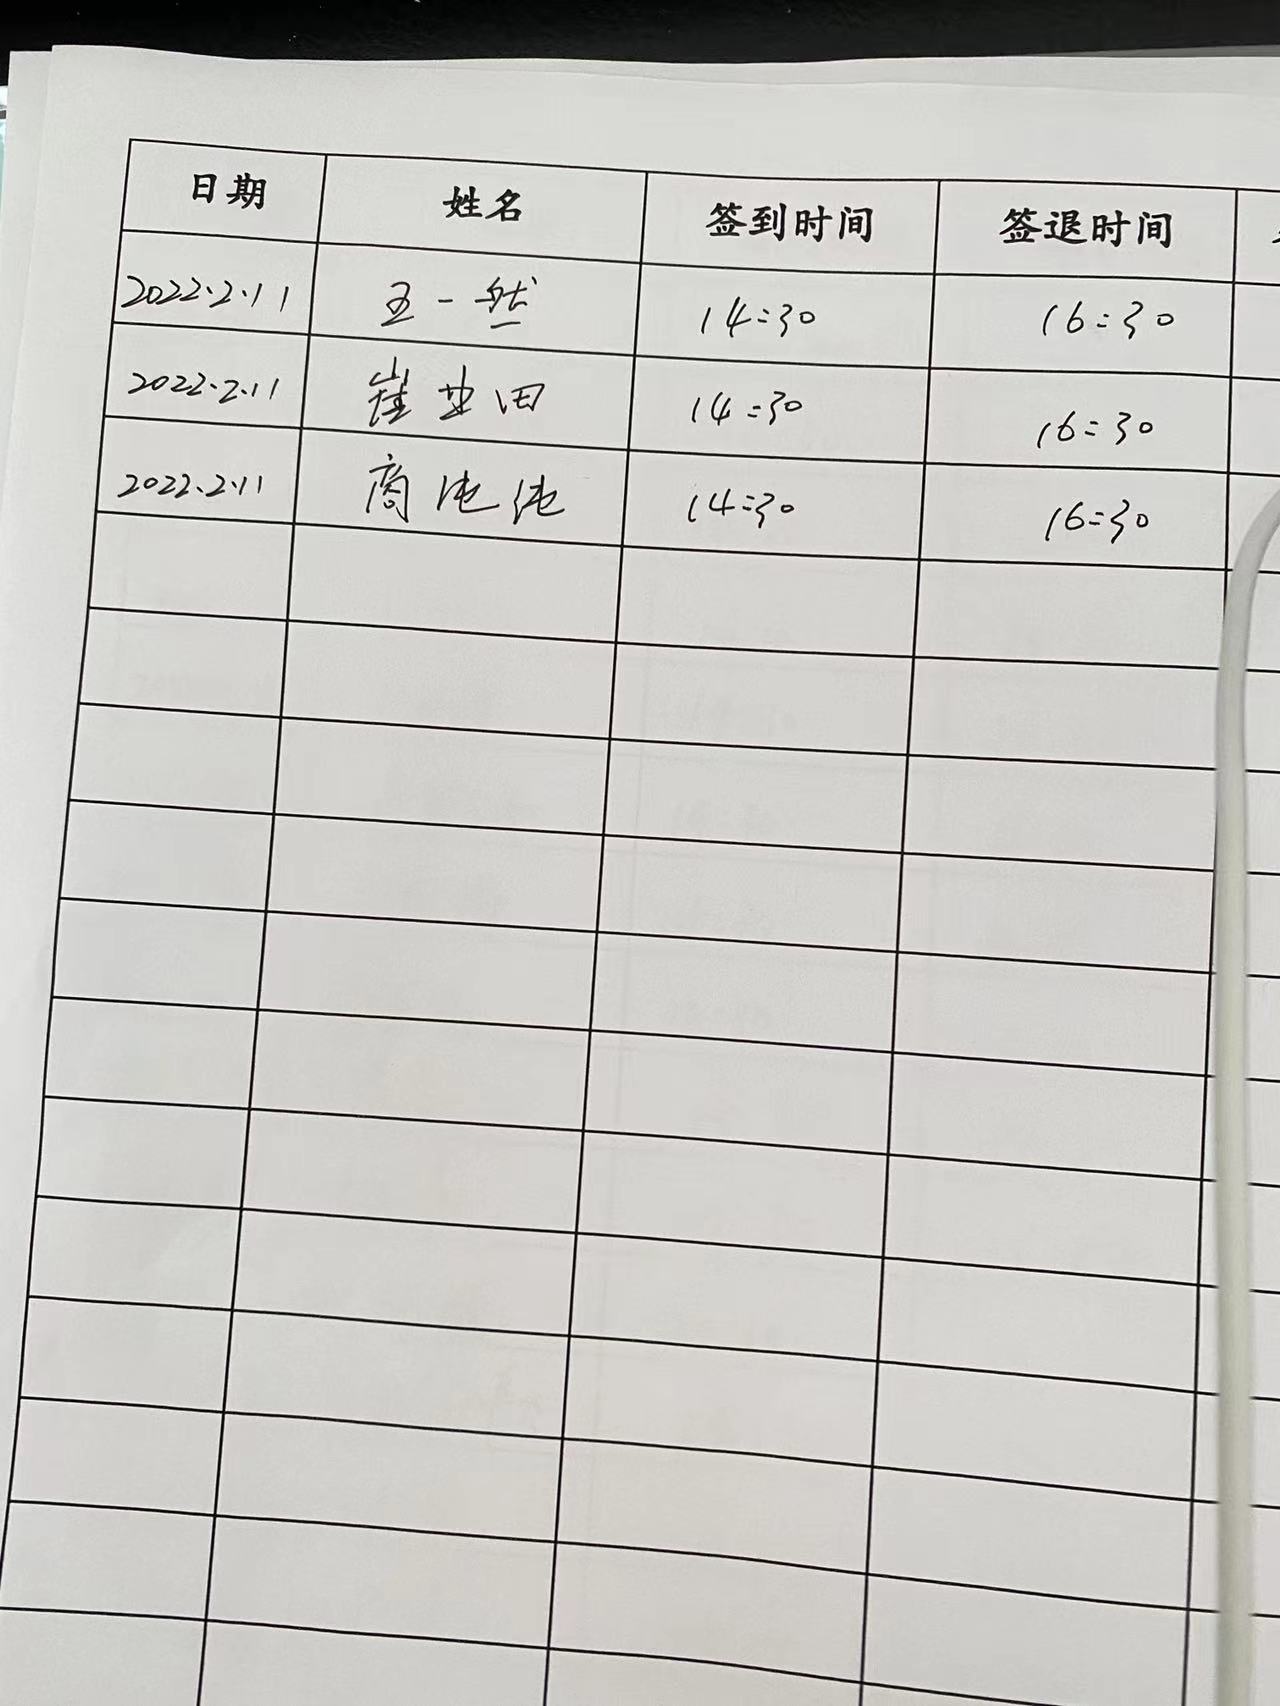 日期 姓名 签到时间 签退时间
2022.2.11 王一然 14:30 16:30
2022.2.11 崔业田 14:30 16:30
2022.2.11 商 14:30 16:30